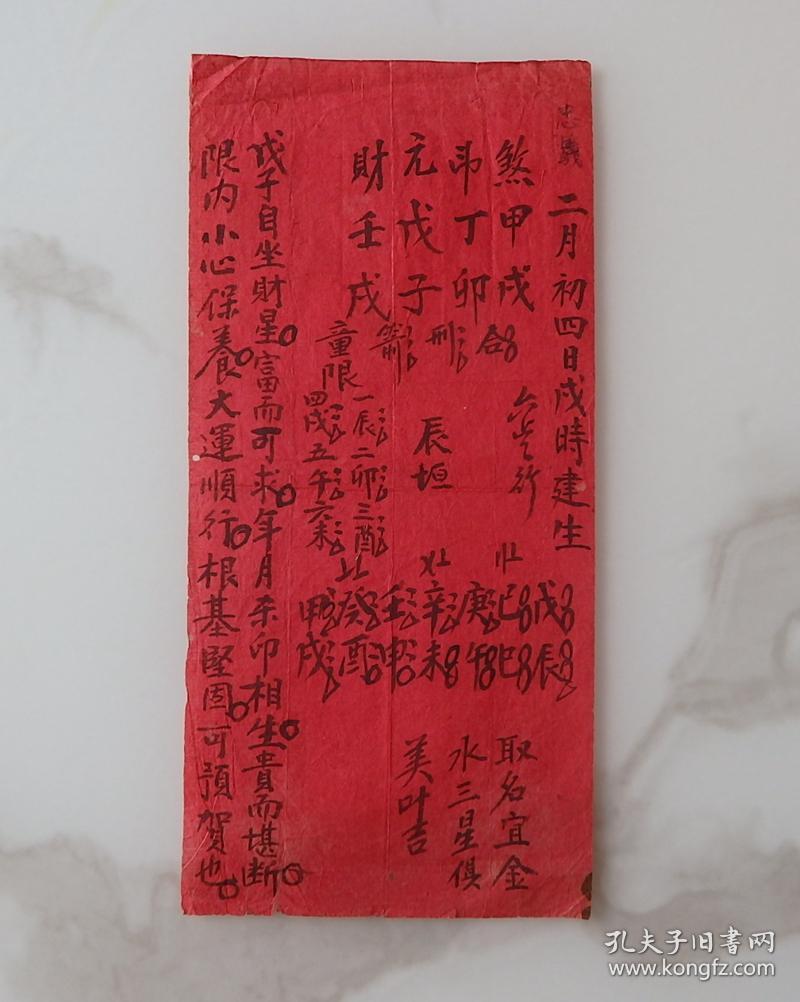 忠義
二月初四日戌時建生
煞甲戌 合
卩丁卯 刑
元戊子
財壬戌
辰垣
童限
一辰二卯三酉
四戌五午六未
戊辰
己巳
庚午
辛未
壬申
癸酉
甲戌
取名宜金
水三星俱
美叶吉
戊子自坐財星富而可求年月杀印相生貴而堪断
限内小心保養大運順行根基堅固可預賀也
孔夫子旧書网
www.kongfz.com